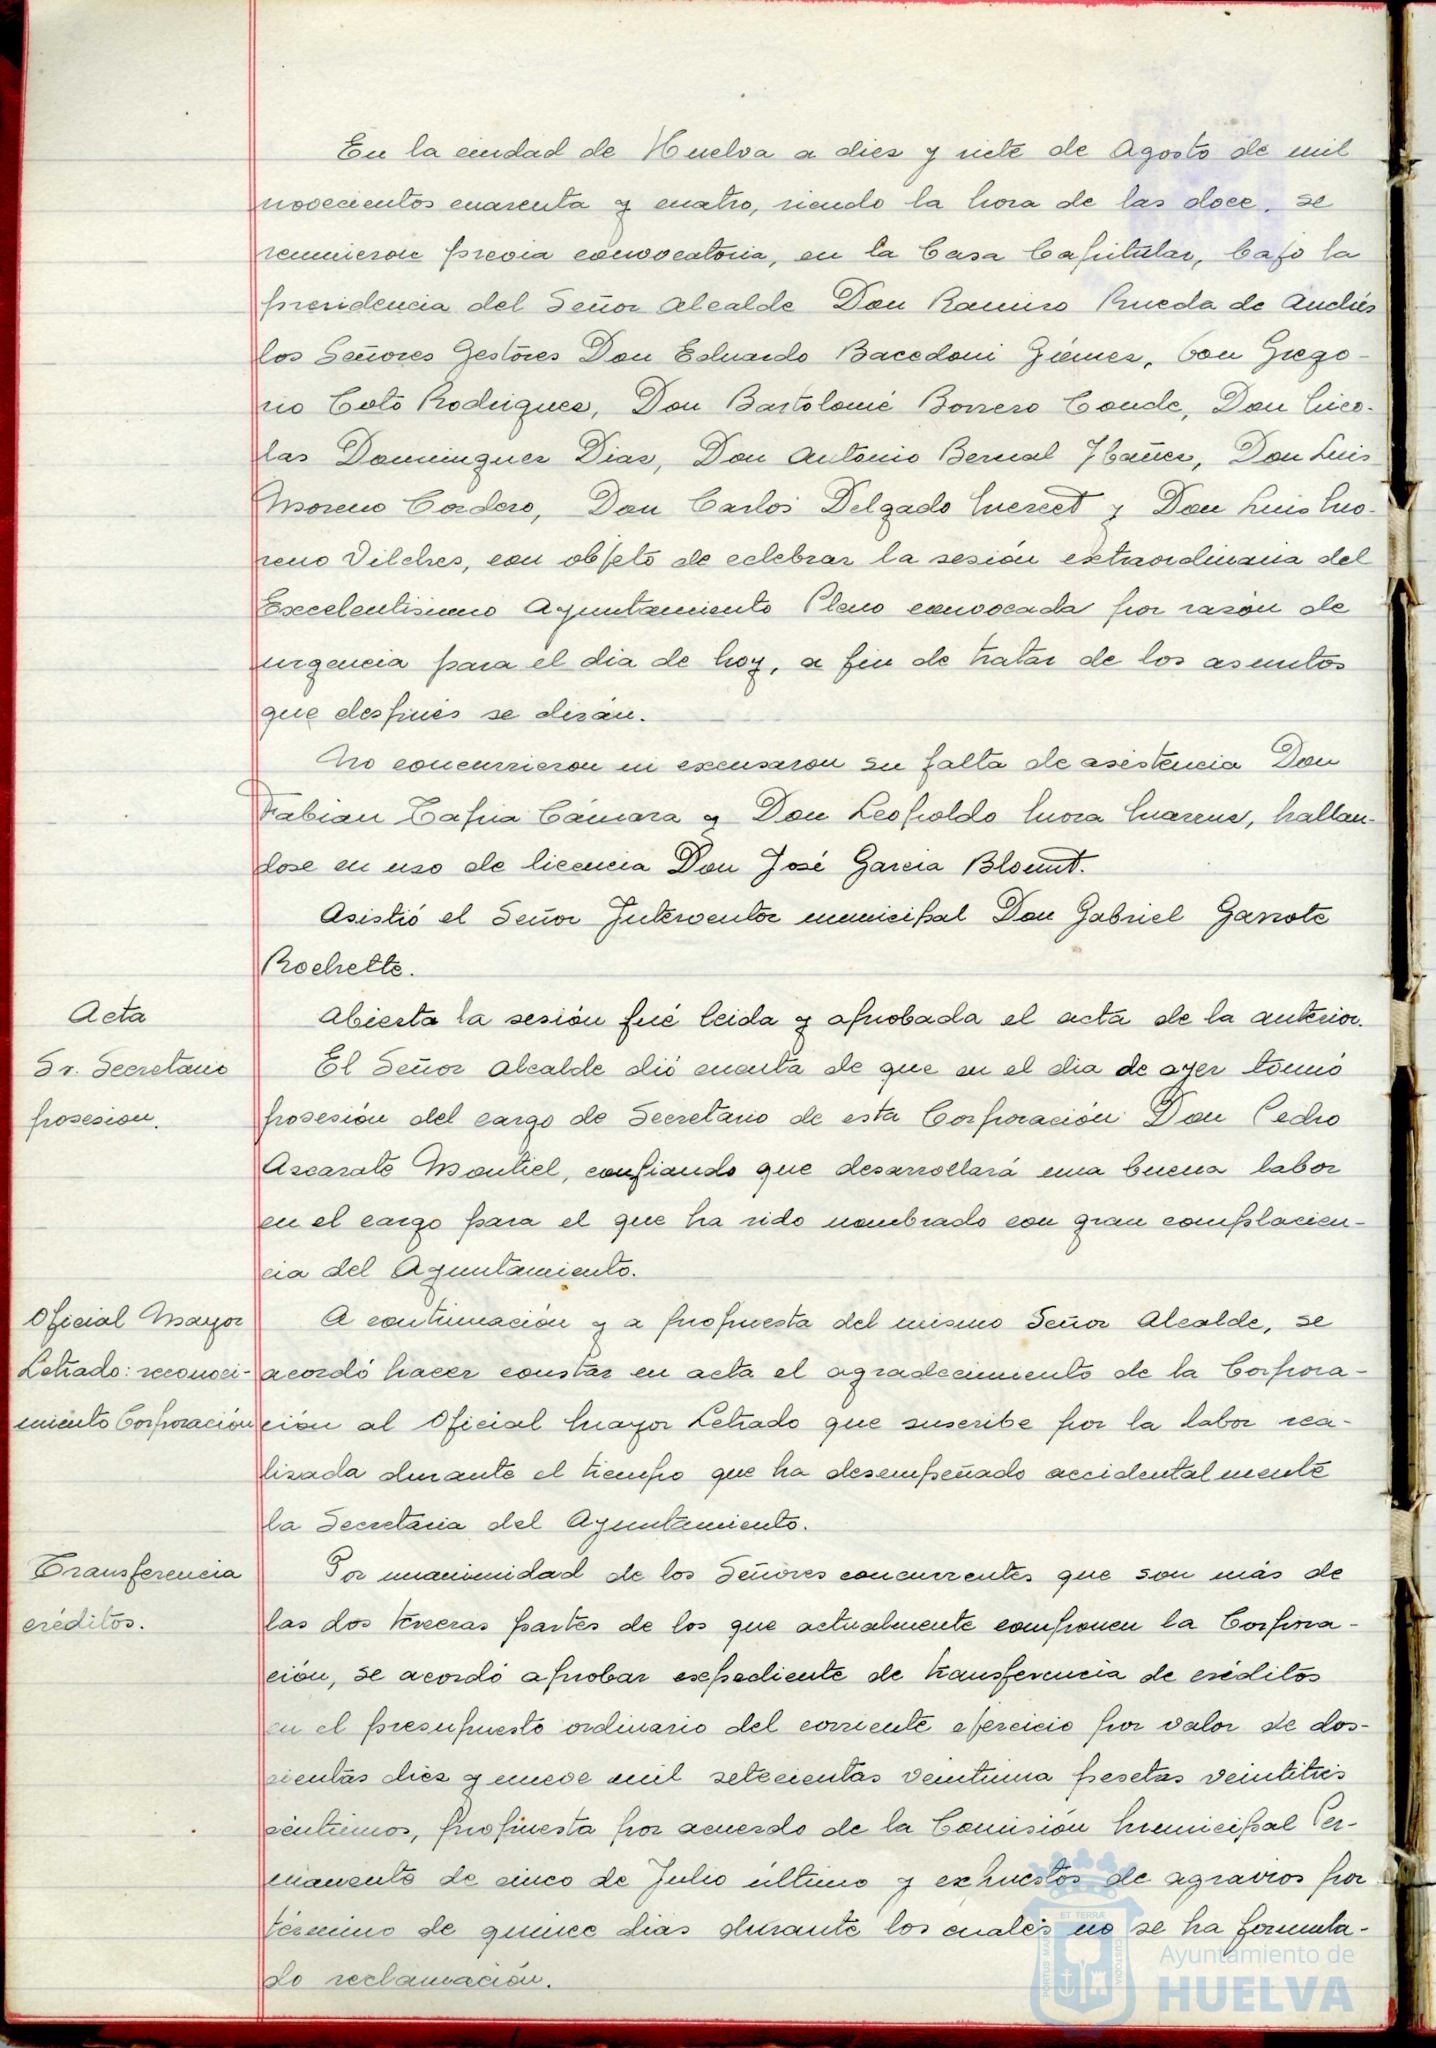 En la ciudad de Huelva a diez y siete de Agosto de mil
novecientos cuarenta y cuatro, siendo la hora de las doce, se
reunieron previa convocatoria, en la Casa Capitular, bajo la
presidencia del Señor Alcalde Don Ramiro Rueda de Andrés
los Señores Gestores Don Eduardo Bacedoni Gómez, Don Grego-
rio Coto Rodriguez, Don Bartolomé Borrero Conde, Don Nico-
las Dominguez Diaz, Don Antonio Bernal Ibañez, Don Luis
Moreno Cordero, Don Carlos Delgado Mercet y Don Luis Mo-
reno Vilches, con objeto de celebrar la sesión extraordinaria del
Excelentisimo Ayuntamiento Pleno convocada por razón de
urgencia para el dia de hoy, a fin de tratar de los asuntos
que después se dirán.
No concurrieron ni excusaron su falta de asistencia Don
Fabian Tapia Cámara y Don Leopoldo Mora, hallan-
dose en uso de licencia Don José Garcia Blount.
Asistió el Señor Interventor municipal Don Gabriel Garrote
Rochette.
Acta
Abierta la sesión fué leida y aprobada el acta de la anterior.
Sr. Secretario
posesion.
El Señor Alcalde dió cuenta de que en el dia de ayer tomó
posesión del cargo de Secretario de esta Corporación Don Pedro
Azcarate Montiel, confiando que desarrollará una buena labor
en el cargo para el que ha sido nombrado con gran complacen-
cia del Ayuntamiento.
Oficial Mayor
Letrado: reconoci-
miento Corporación
A continuación y a propuesta del mismo Señor Alcalde, se
acordó hacer constar en acta el agradecimiento de la Corpora-
ción al Oficial Mayor Letrado que suscribe por la labor rea-
lizada durante el tiempo que ha desempeñado accidentalmente
la Secretaria del Ayuntamiento.
Transferencia
créditos.
Por unanimidad de los Señores concurrentes que son más de
las dos terceras partes de los que actualmente componen la Corpora-
ción, se acordó aprobar expediente de transferencia de créditos
en el presupuesto ordinario del corriente ejercicio por valor de dos-
cientas diez y nueve mil setecientas veintiuna pesetas veintitrés
céntimos, propuesta por acuerdo de la Comisión Municipal Per-
manente de cinco de Julio último y expuestos de agravios por
término de quince dias durante los cuales no se ha formula-
do reclamación.
Ayuntamiento de
HUELVA